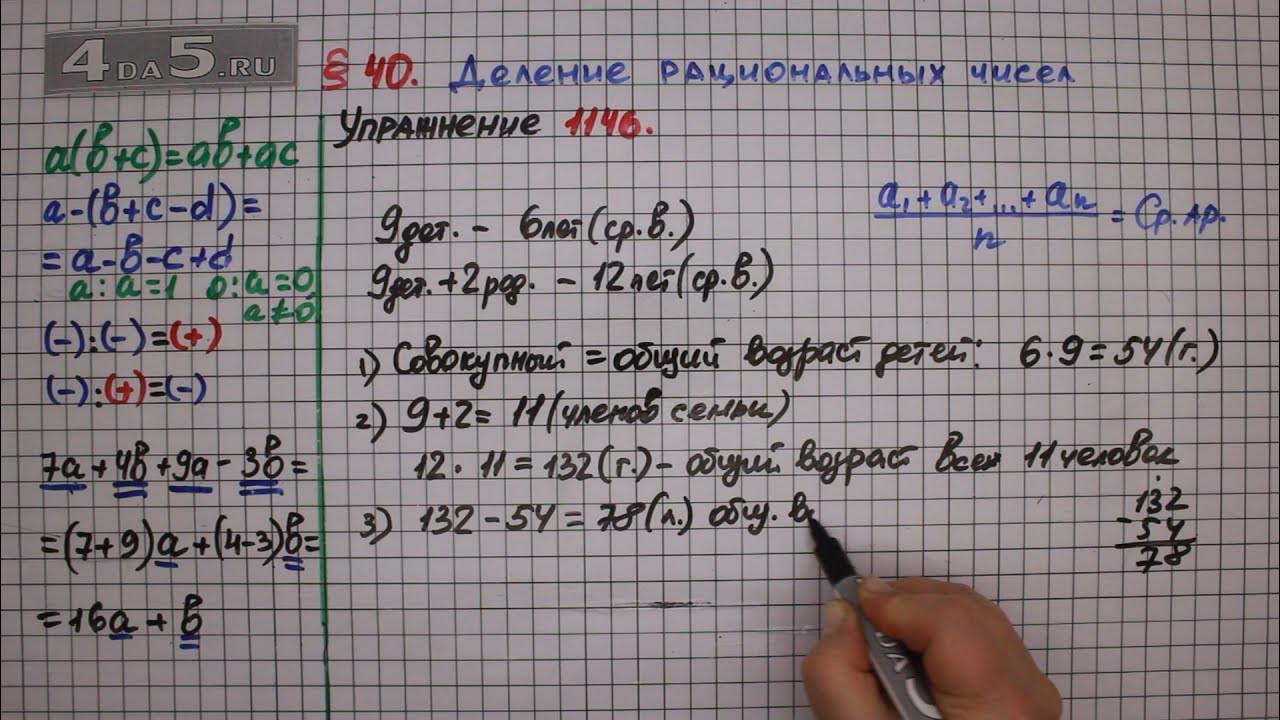 4DA5.RU
§ 40. Деление рациональных чисел
Упражнение 1146.
a(b+c)=ab+ac
a-(b+c-d)=
=a-b-c+d
a:a=1 0:a=0
a≠0
(-):(-)=(+)
(-):(+)=(-)
7a+4b+9a-3b=
=(7+9)a+(4-3)b=
=16a+b
9дет. - 6лет(ср.в.)
9дет.+2род. - 12лет(ср.в.)
a₁+a₂+...+aₙ
n
= Ср. ар.
1) Совокупный = общий возраст детей: 6·9=54(г.)
2) 9+2= 11(членов семьи)
12·11=132(г.)- общий возраст всех 11 человек
3) 132-54=78(л.) общ. в
132
-54
78
DA5